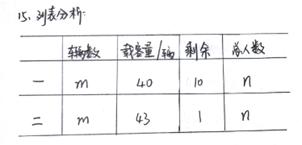 15. 列表分析:
车辆数 载客量/辆 剩余 总人数
一 m 40 10 n
二 m 43 1 n